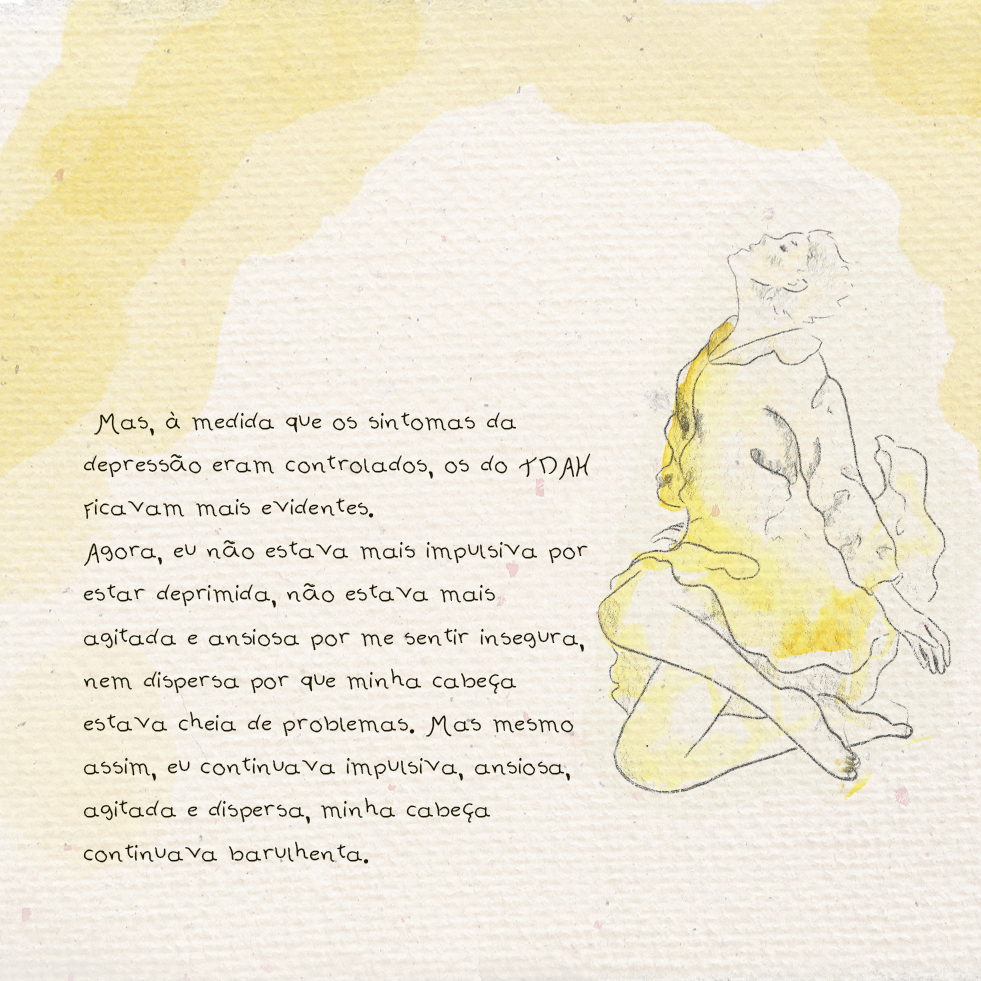 Mas, à medida que os sintomas da
depressão eram controlados, os do TDAH
ficavam mais evidentes.
Agora, eu não estava mais impulsiva por
estar deprimida, não estava mais
agitada e ansiosa por me sentir insegura,
nem dispersa por que minha cabeça
estava cheia de problemas. Mas mesmo
assim, eu continuava impulsiva, ansiosa,
agitada e dispersa, minha cabeça
continuava barulhenta.